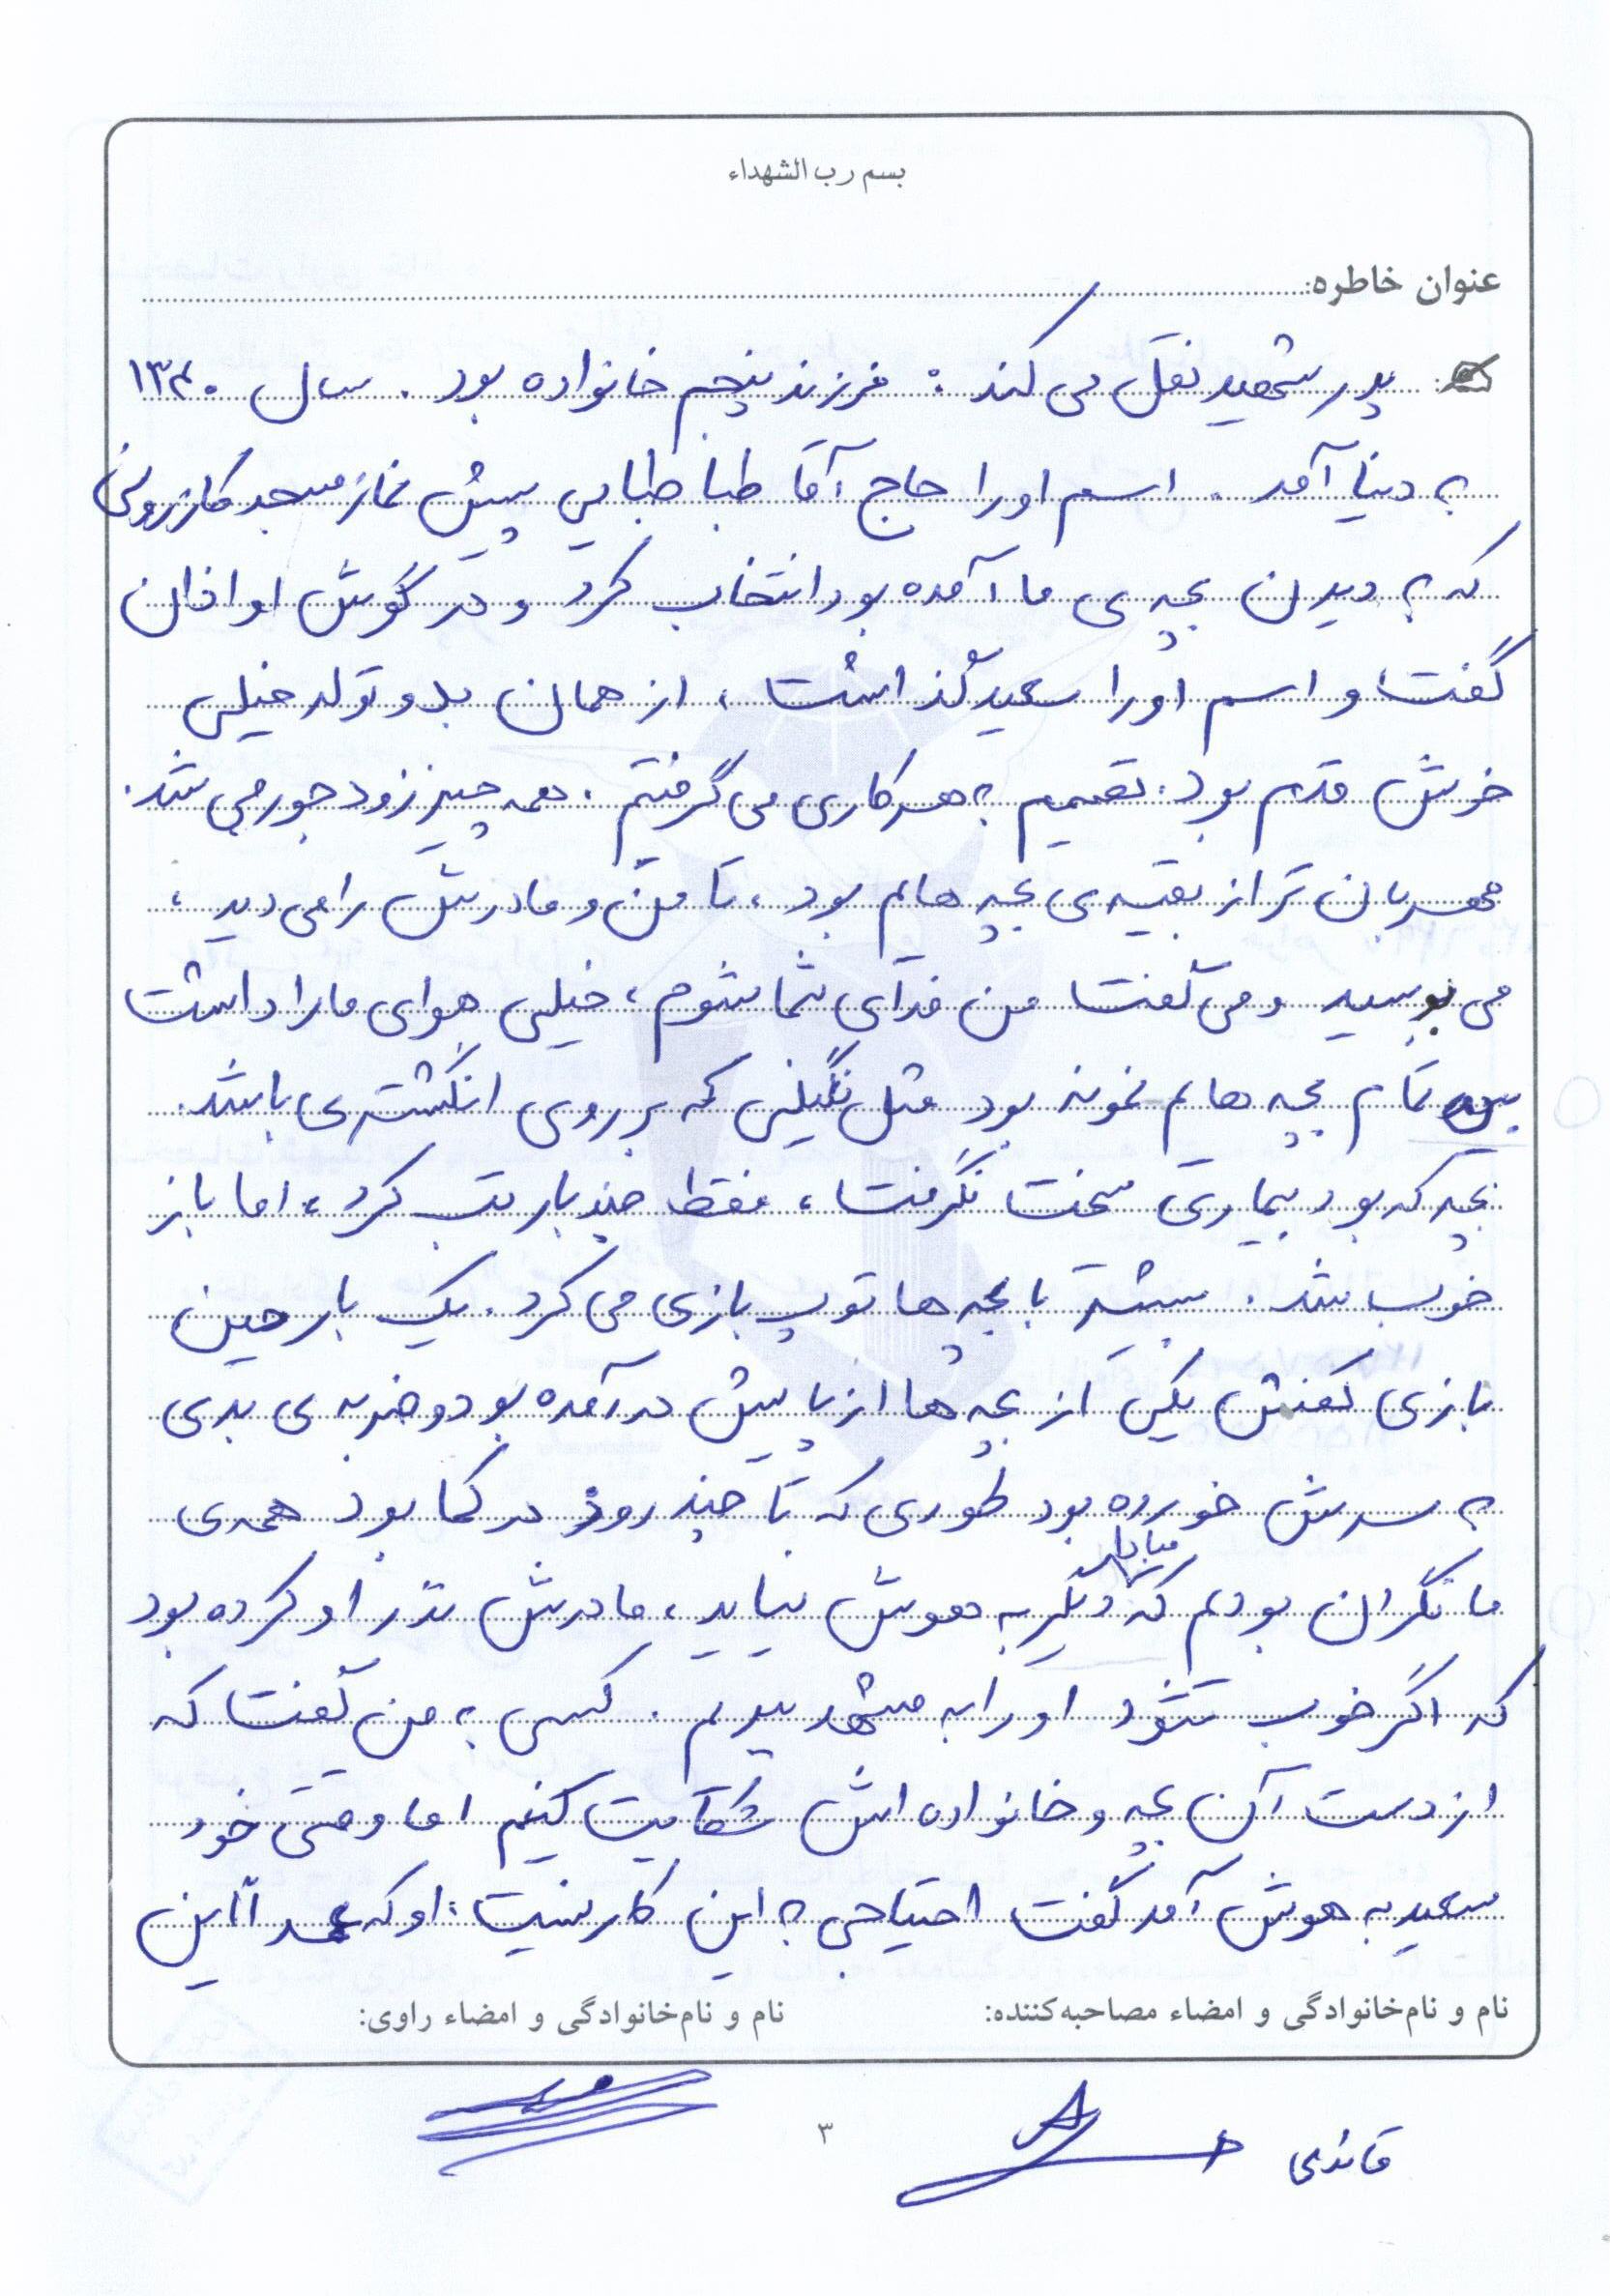 بسم رب الشهداء
عنوان خاطره:
پدر شهید نقل می کند : فرزند پنجم خانواده بود . سال ۱۳۴۰
به دنیا آمد . اسم او را حاج آقا طباطبایی پیش نماز مسجد کازرونی
که به دیدن بچه ی ما آمده بود انتخاب کرد و در گوش او اذان
گفت و اسم او را سعید گذاشت ، از همان بدو تولد خیلی
خوش قدم بود . تصمیم به هر کاری می گرفتم . همه چیز زود جور می شد .
مهربان تر از بقیه ی بچه هایم بود ، تا من و مادرش را می دید ،
می بوسید و می گفت من فدای شما شوم ، خیلی هوای ما را داشت
بین تمام بچه هایم نمونه بود مثل نگینی که بر روی انگشتری باشد .
بچه که بود بیماری سخت نگرفت ، فقط چند بار تب کرد ، اما باز
خوب شد . بیشتر با بچه ها توپ بازی می کرد . یک بار حین
بازی کفش یکی از بچه ها از پایش در آمده بود و ضربه ی بدی
به سرش خورده بود طوری که تا چند روز در کما بود همه ی
ما نگران بودیم که مبادا دیگر به هوش نیاید ، مادرش نذر او کرده بود
که اگر خوب شود او را به مشهد ببریم . کسی به من گفت که
از دست آن بچه و خانواده اش شکایت کنیم اما وقتی خود
سعید به هوش آمد گفت احتیاجی به این کار نیست ، او که عمداً این
نام و نام‌خانوادگی و امضاء مصاحبه‌کننده:
نام و نام‌خانوادگی و امضاء راوی:
۳